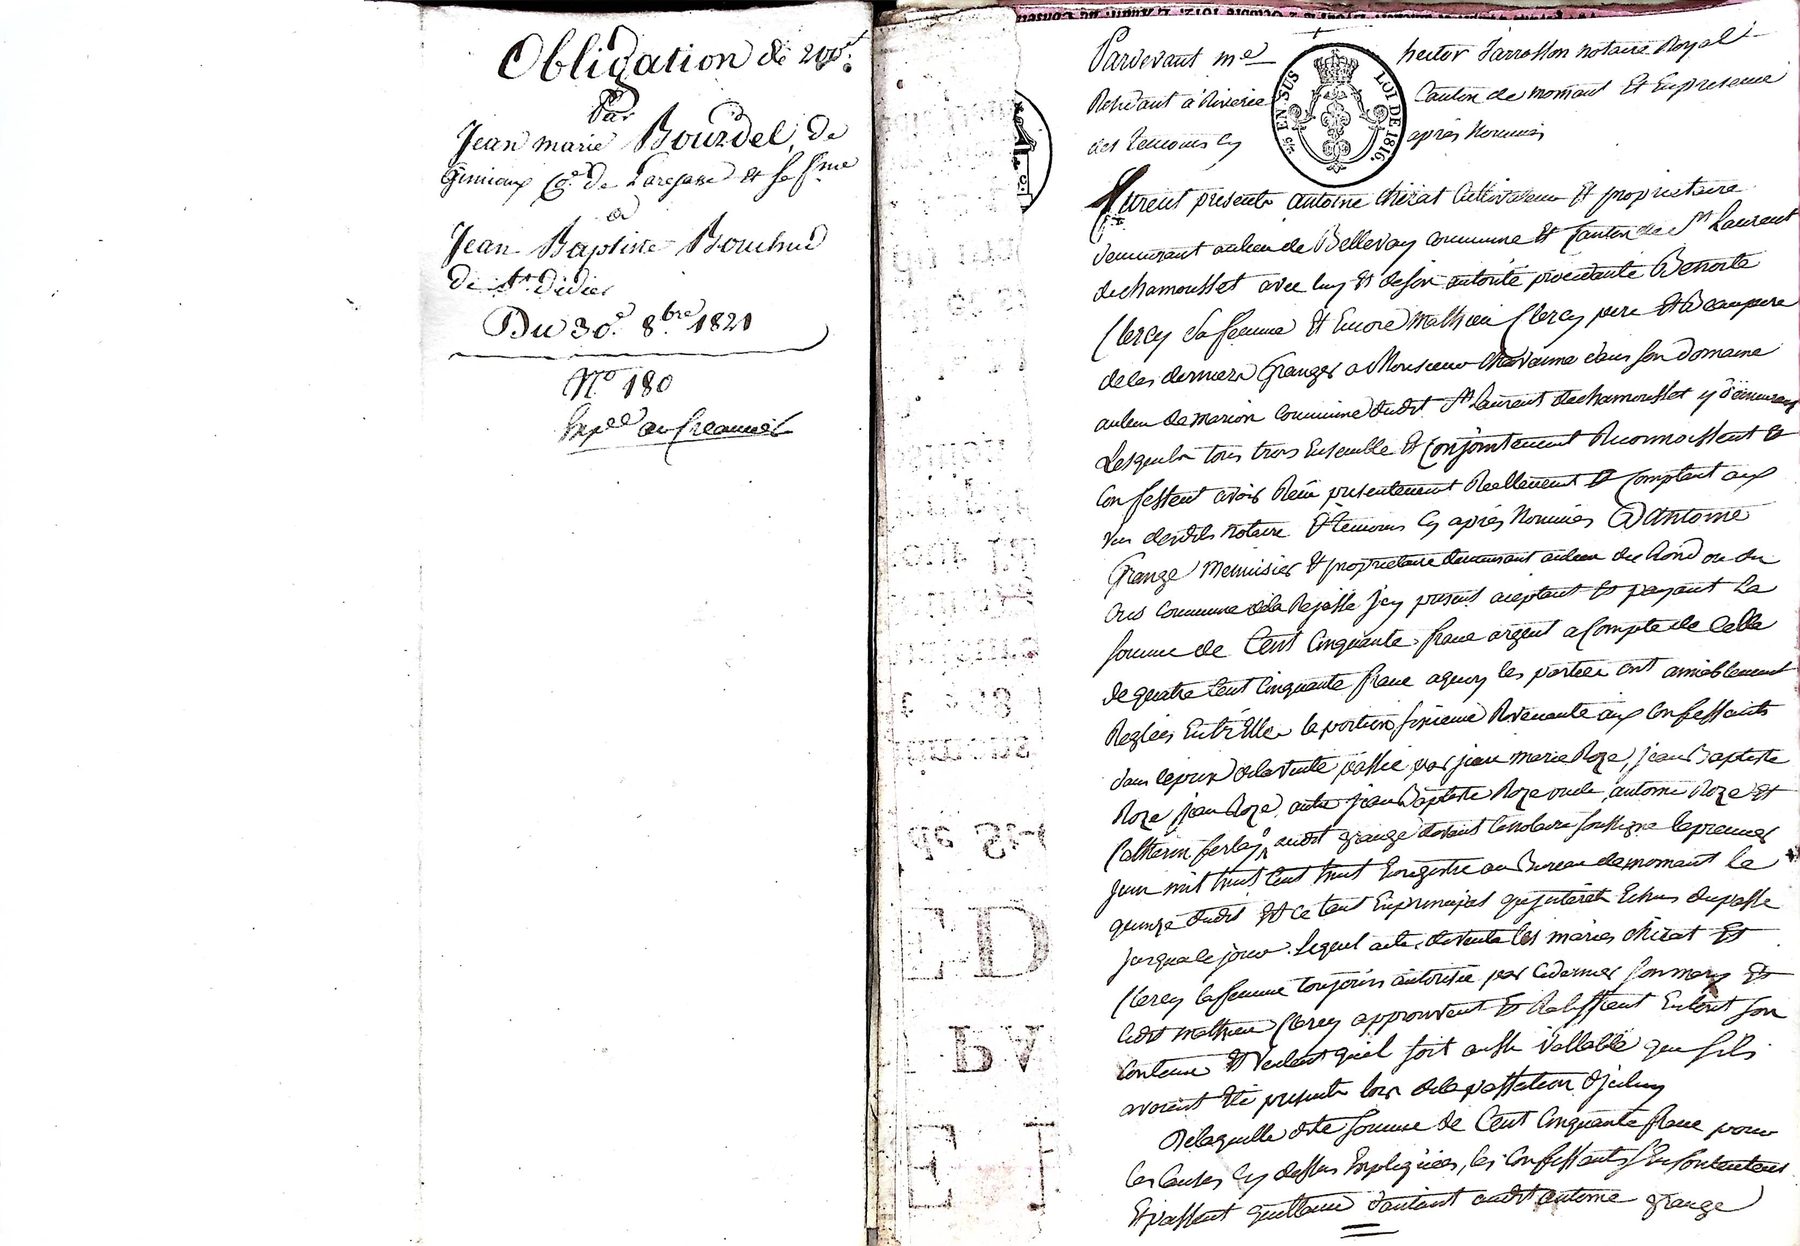 Obligation de 200f.
Par
Jean marie Bourdel, de
Giniaux Ce. de Larejasse et sa fme
a
Jean Baptiste Bouchud
de St didier
Du 30e. 8bre 1821
No 180
Expee au Creancier
Pardevant me hector Jarrosson notaire Royal
Residant a Riverie Canton de mornant Et En presence
des temoins Cy après Nommés
25 EN SUS LOI DE 1816.
furent presents antoine Chirat Cultivateur Et proprietaire
demeurant au lieu de Bellevay commune Et Canton de St Laurent
de chamousset avec luy Et de son autorité procedante Benoite
Clercy sa femme Et Encore Mathieu Clercy pere Et Beaupere
de ces derniers Granger a Monsieur Chavanne dans son Domaine
au lieu de marion commune dudit St Laurent de chamousset y demeurant
Lesquels tous trois Ensemble Et Conjointement Reconnoissent Et
Confessent avoir Reçu presentement Reellement Et Comptant aux
vus desdits Notaire Et temoins Cy après Nommés D'antoine
Grange Menuisier Et proprietaire demeurant au lieu du Rond ou du
Cras Commune de la Rejasse Icy present aceptant Et payant La
somme de Cent Cinquante franc argent a Compte de Celle
de quatre Cent Cinquante franc a quoy les parties ont amiablement
Reglées Entr'Elles la portion sixieme Revenante aux Confessants
dans le prix de la vente passée par jean marie Roze, jean Baptiste
Roze jean Roze, autre jean Baptiste Roze oncle, antoine Roze Et
Catherin ferlay, audit grange devant le notaire soussigné le premier
juin mil huit Cent huit Enregistré au Bureau de mornant le
quinze dudit Et Ce tant En principal qu'interets Echus du passé
jusqu'a ce jour. Lequel acte de vente les mariés Chirat Et
Clercy la femme toujours autorisée par Ce dernier son mary Et
Ledit mathieu Clercy approuvent Et Ratiffient En tout son
Contenu Et Veulent qu'il soit aussi Vallable que s'ils
avoient Eté presents lors de la passation d'Icelluy
De laquelle dite somme de Cent Cinquante franc pour
les Causes Cy dessus Expliquées, les Confessants s'En Contentent
Et passent quittance d'autant audit antoine grange